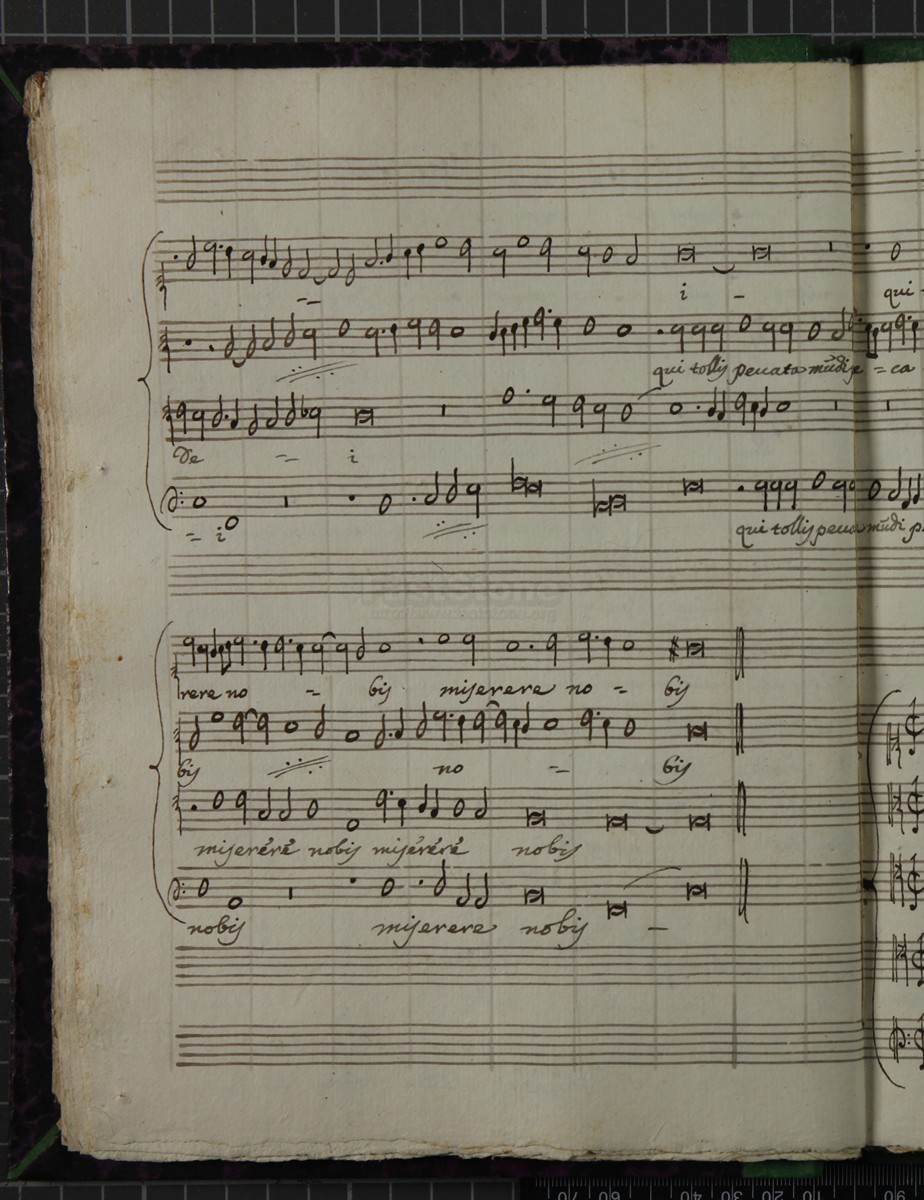 i - qui -
qui tollis peccata mũdi = ca
De = i
= i qui tollis pecca mũdi p
rere no = bis miserere no = bis
bis no = bis
miserere nobis miserere nobis
nobis miserere nobis -